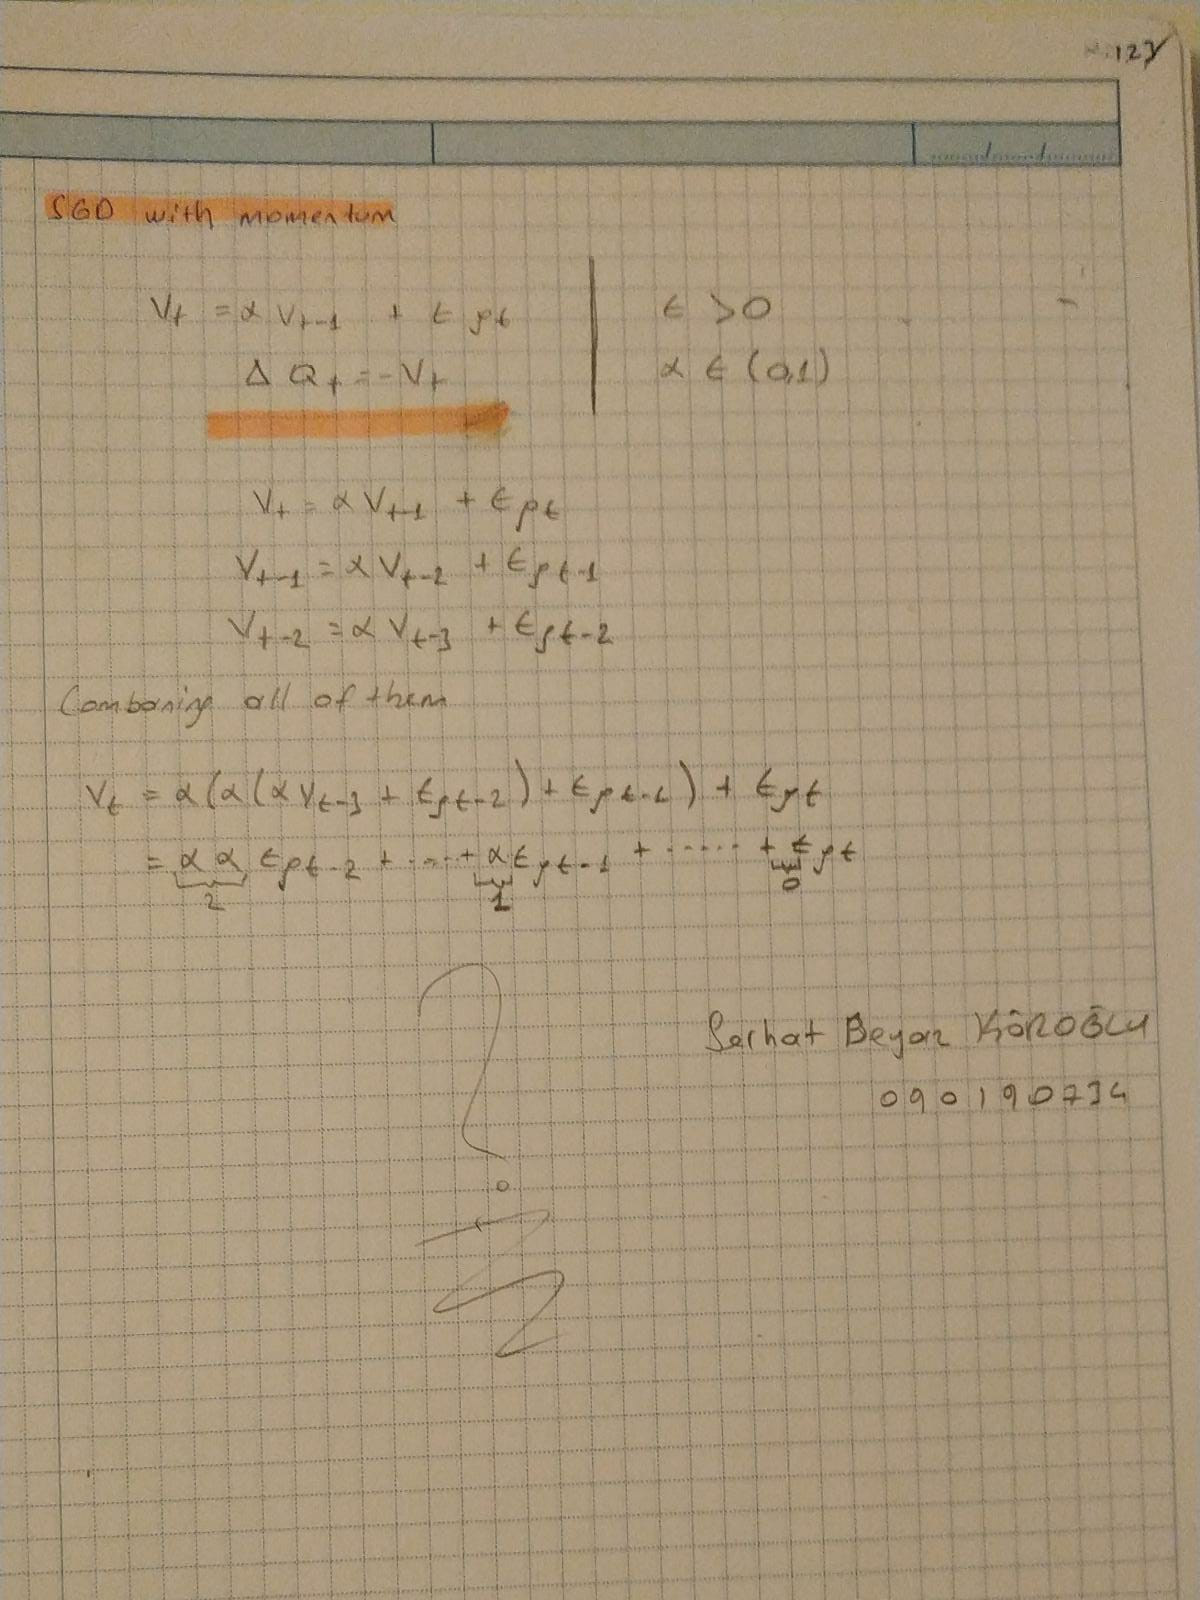 SGD with momentum
V_t = α V_{t-1} + ϵ g_t | ϵ > 0
Δ Q_t = - V_t | α ∈ (0,1)
V_t = α V_{t-1} + ϵ g_t
V_{t-1} = α V_{t-2} + ϵ g_{t-1}
V_{t-2} = α V_{t-3} + ϵ g_{t-2}
Combaning all of them
V_t = α(α(α V_{t-3} + ϵ g_{t-2}) + ϵ g_{t-1}) + ϵ g_t
= α α ϵ g_{t-2} + ..... + α ϵ g_{t-1} + ...... + ϵ g_t
2 1 0
?
Serhat Beyaz KÖROĞLU
090190734